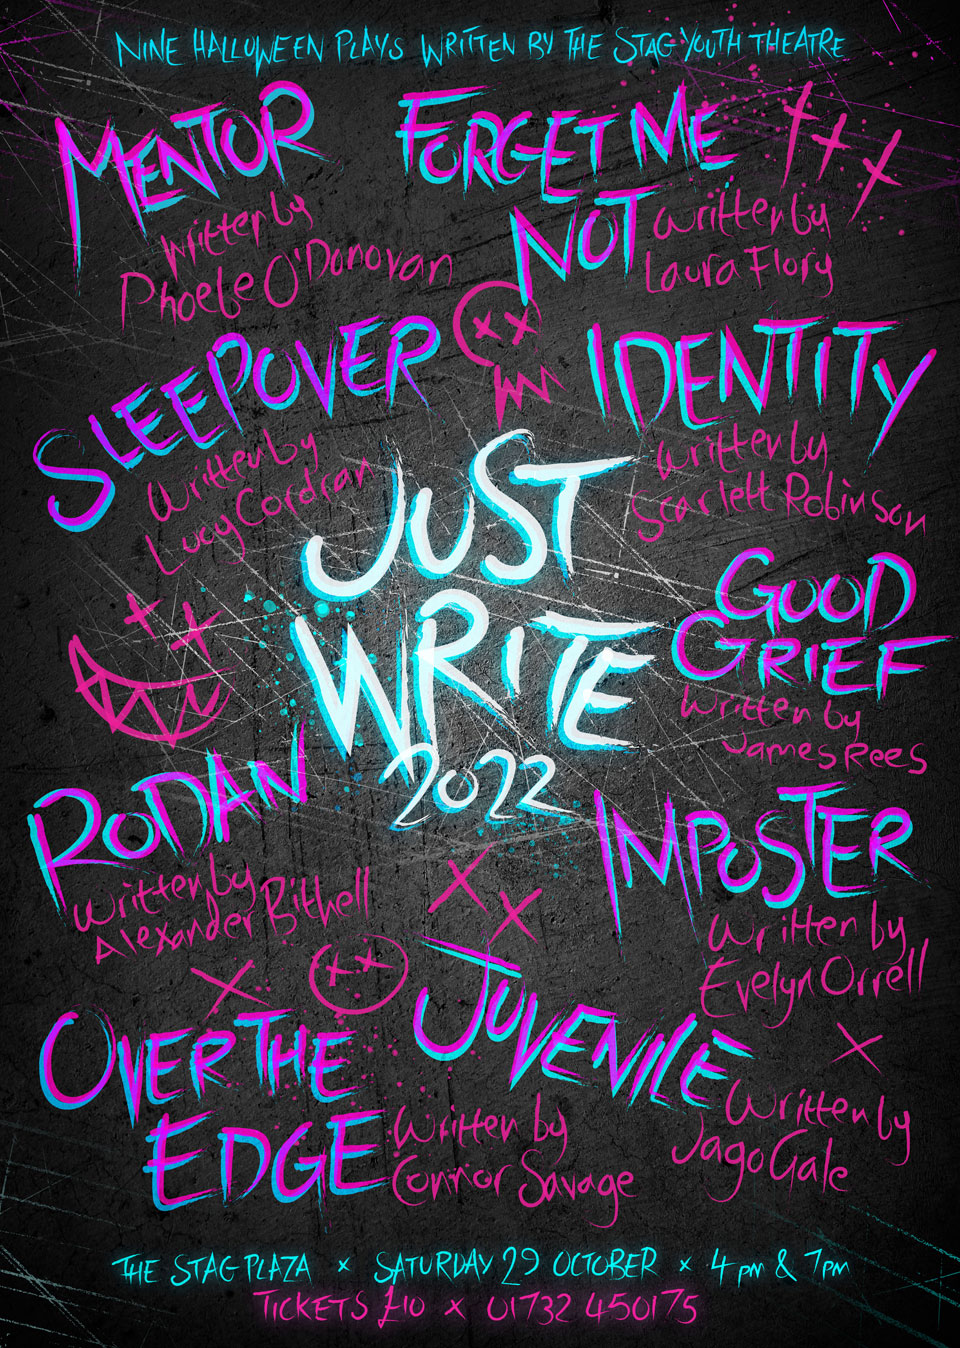 NINE HALLOWEEN PLAYS WRITTEN BY THE STAG YOUTH THEATRE
MENTOR
written by
Phoebe O'Donovan
FORGET ME
NOT
written by
Laura Flory
SLEEPOVER
written by
Lucy Cordran
IDENTITY
written by
Scarlett Robinson
JUST
WRITE
2022
GOOD
GRIEF
written by
James Rees
RODAN
written by
Alexander Bithell
IMPOSTER
written by
Evelyn Orrell
OVER THE
EDGE
written by
Connor Savage
JUVENILE
written by
Jago Gale
THE STAG PLAZA x SATURDAY 29 OCTOBER x 4PM & 7PM
TICKETS £10 x 01732 450175